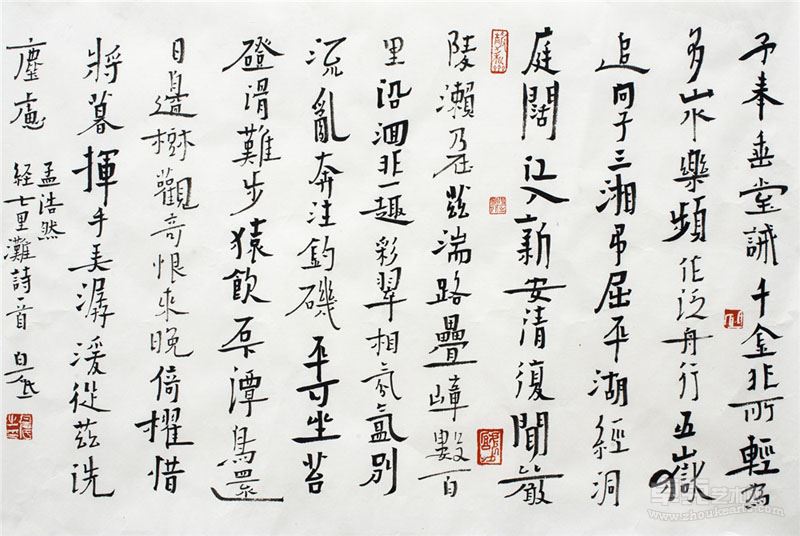 予奉垂堂誡千金非所輕為
多山水樂頻作泛舟行五嶽
追向子三湘弔屈平湖經洞
庭闊江入新安清復聞嚴
陵瀨乃在茲湍路疊嶂數百
里沿洄非一趣彩翠相氛氳別
流亂奔注釣磯平可坐苔
磴滑難步猿飲石下潭鳥還
日邊樹觀奇恨來晚倚櫂惜
將暮揮手弄潺湲從茲洗
塵慮
孟浩然
經七里灘詩一首 白砥
www.zhoukearts.com